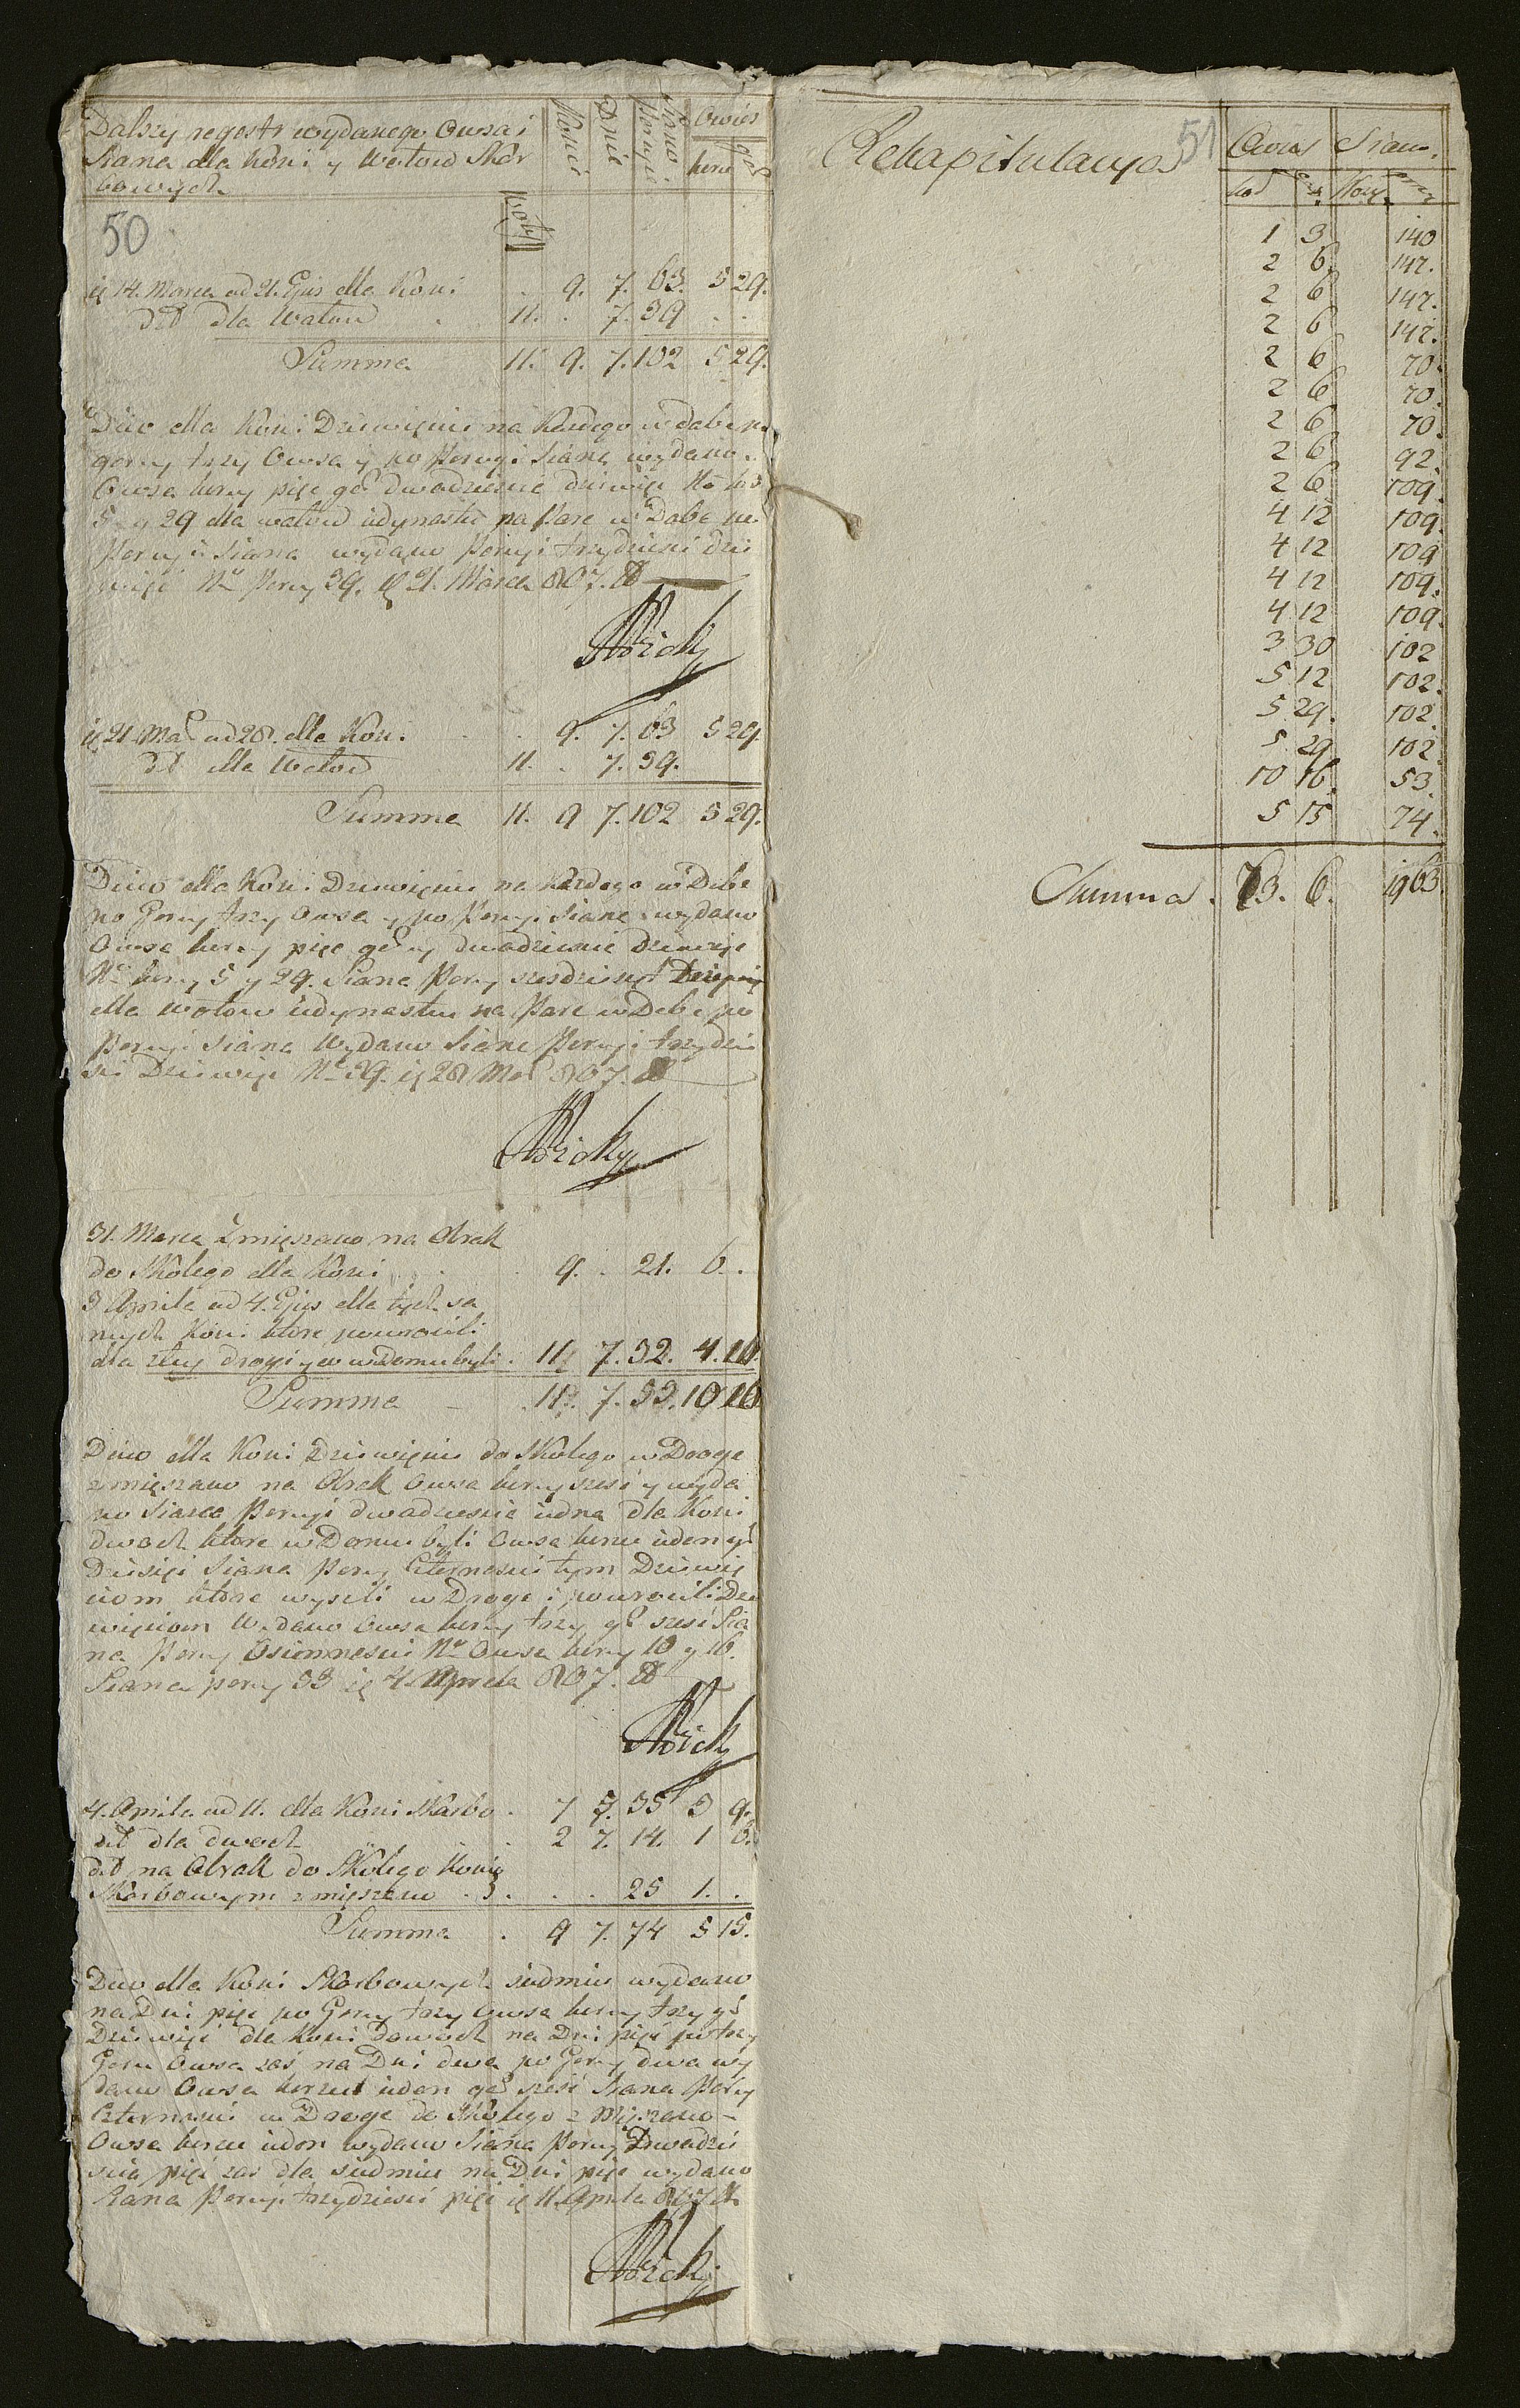 Dalszy regestr wydanego Owsa i
Siana dla Koni y Wołow Skar
bowych
Woły Konie Dnie Siano Porcyi Owies korce gar
50
14. Marca ad 21. Ejus dla Koni . 9. 7. 63. 5 29.
det dla Wołow . 11. . 7. 39 . .
Summa 11. 9. 7. 102 5 29.
Dano dla Koni Dziewięciu na Każdego w dobę po
garcy trzy Owsa y po Porcyi Siana wydano
Owsa korcy pięć gar dwadzieścia dziewięć No kor
5 y 29 dla wołow iedynastu na Parę w Dobe po
Porcyi Siana wydano Porcyi trzydzieści dzie
więć No Porcy 39. 21. Marca 807.
21 Mar ad 28. dla Koni . . 9. 7. 63 5 29.
det dla Wołow 11. . 7. 39.
Summa 11. 9 7. 102 5 29.
Dano dla Koni Dziewięciu na Każdego w Dobe
po Garcy trzy Owsa y po Porcyi Siana wydano
Owsa korcy pięc garcy dwadziescie Dziewięc
No korcy 5 y 29. Siana Porcy szesdziesiąt
dla wołow iedynastu na Pare w Dobe po
Porcyi Siana Wydano Siana Porcyi trzydzie
sci Dziewięć No 39. 28 Mar 807.
31. Marca Zmięszano na Obrok
do Skolego dla Koni . 9. . 21. 6. .
3 Aprila ad 4. Ejus dla tych sa
mych Koni ktore powrocili
dla złey drogi y co w domu byli . 11 7. 32. 4. 16.
Summa 11. 7. 53. 10 16
Dano dla Koni Dziewięciu do Skolego w Drogę
zmięszano na Obrok Owsa korcy szesć y wyda
no Siana Porcyi dwadziescia iedna dla Koni
dwoch ktore w Domu byli Owsa korzec ieden gar
Dziesięć Siana Porcy Czternascie tym Dziewię
ciom ktore wyszli w Droge i powrocili Dzie
więciom Wydano Owsa korcy trzy gar szesć Sia
na Porcy Osiemnascie No Owsa korcy 10 y 16.
Siana porcy 53 4. Aprila 807.
4. Aprila ad 11. dla Koni Skarbo . 7 5. 35 3 9.
det dla dwoch . 2 7. 14. 1 6.
det na Obrok do Skolego Koniom
Skarbowym zmięszano . . . 25 1. .
Summa . 9 7. 74 5 15.
Dano dla Koni Skarbowych siedmiu wydano
na Dni pięć po Garcy trzy Owsa korcy trzy gar
Dziewięć dla Koni dwoch na Dni pięć po trzy
Garce Owsa zaś na Dni dwa po Garcy dwa wy
dano Owsa korzec ieden gar szesć Siana Porcy
Czternascie w Droge do Skolego zmięszano
Owsa korzec ieden wydano Siana Porcy Dwadzie
scia pięć zas dla siedmiu na Dni pięć wydano
Siana Porcyi trzydziesci pięć 11. Aprila 807
51
Rekapitulacya Owies Siano.
kor gar. Porcy
1 3 140
2 6 147.
2 6 147.
2 6 147.
2 6 70.
2 6 70.
2 6 70.
2 6 92.
2 6 109.
4 12 109.
4 12 109
4 12 109.
4 12 109.
3 30 102
5 12 102.
5 29. 102.
5 29 102
10 16. 53.
5 15 74.
Summa . 73. 6. 1963.